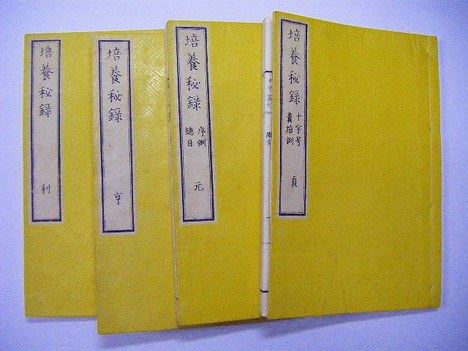 培養秘録
利
培養秘録
亨
培養秘録
序例
總目
元
培養秘録
十字号
貞